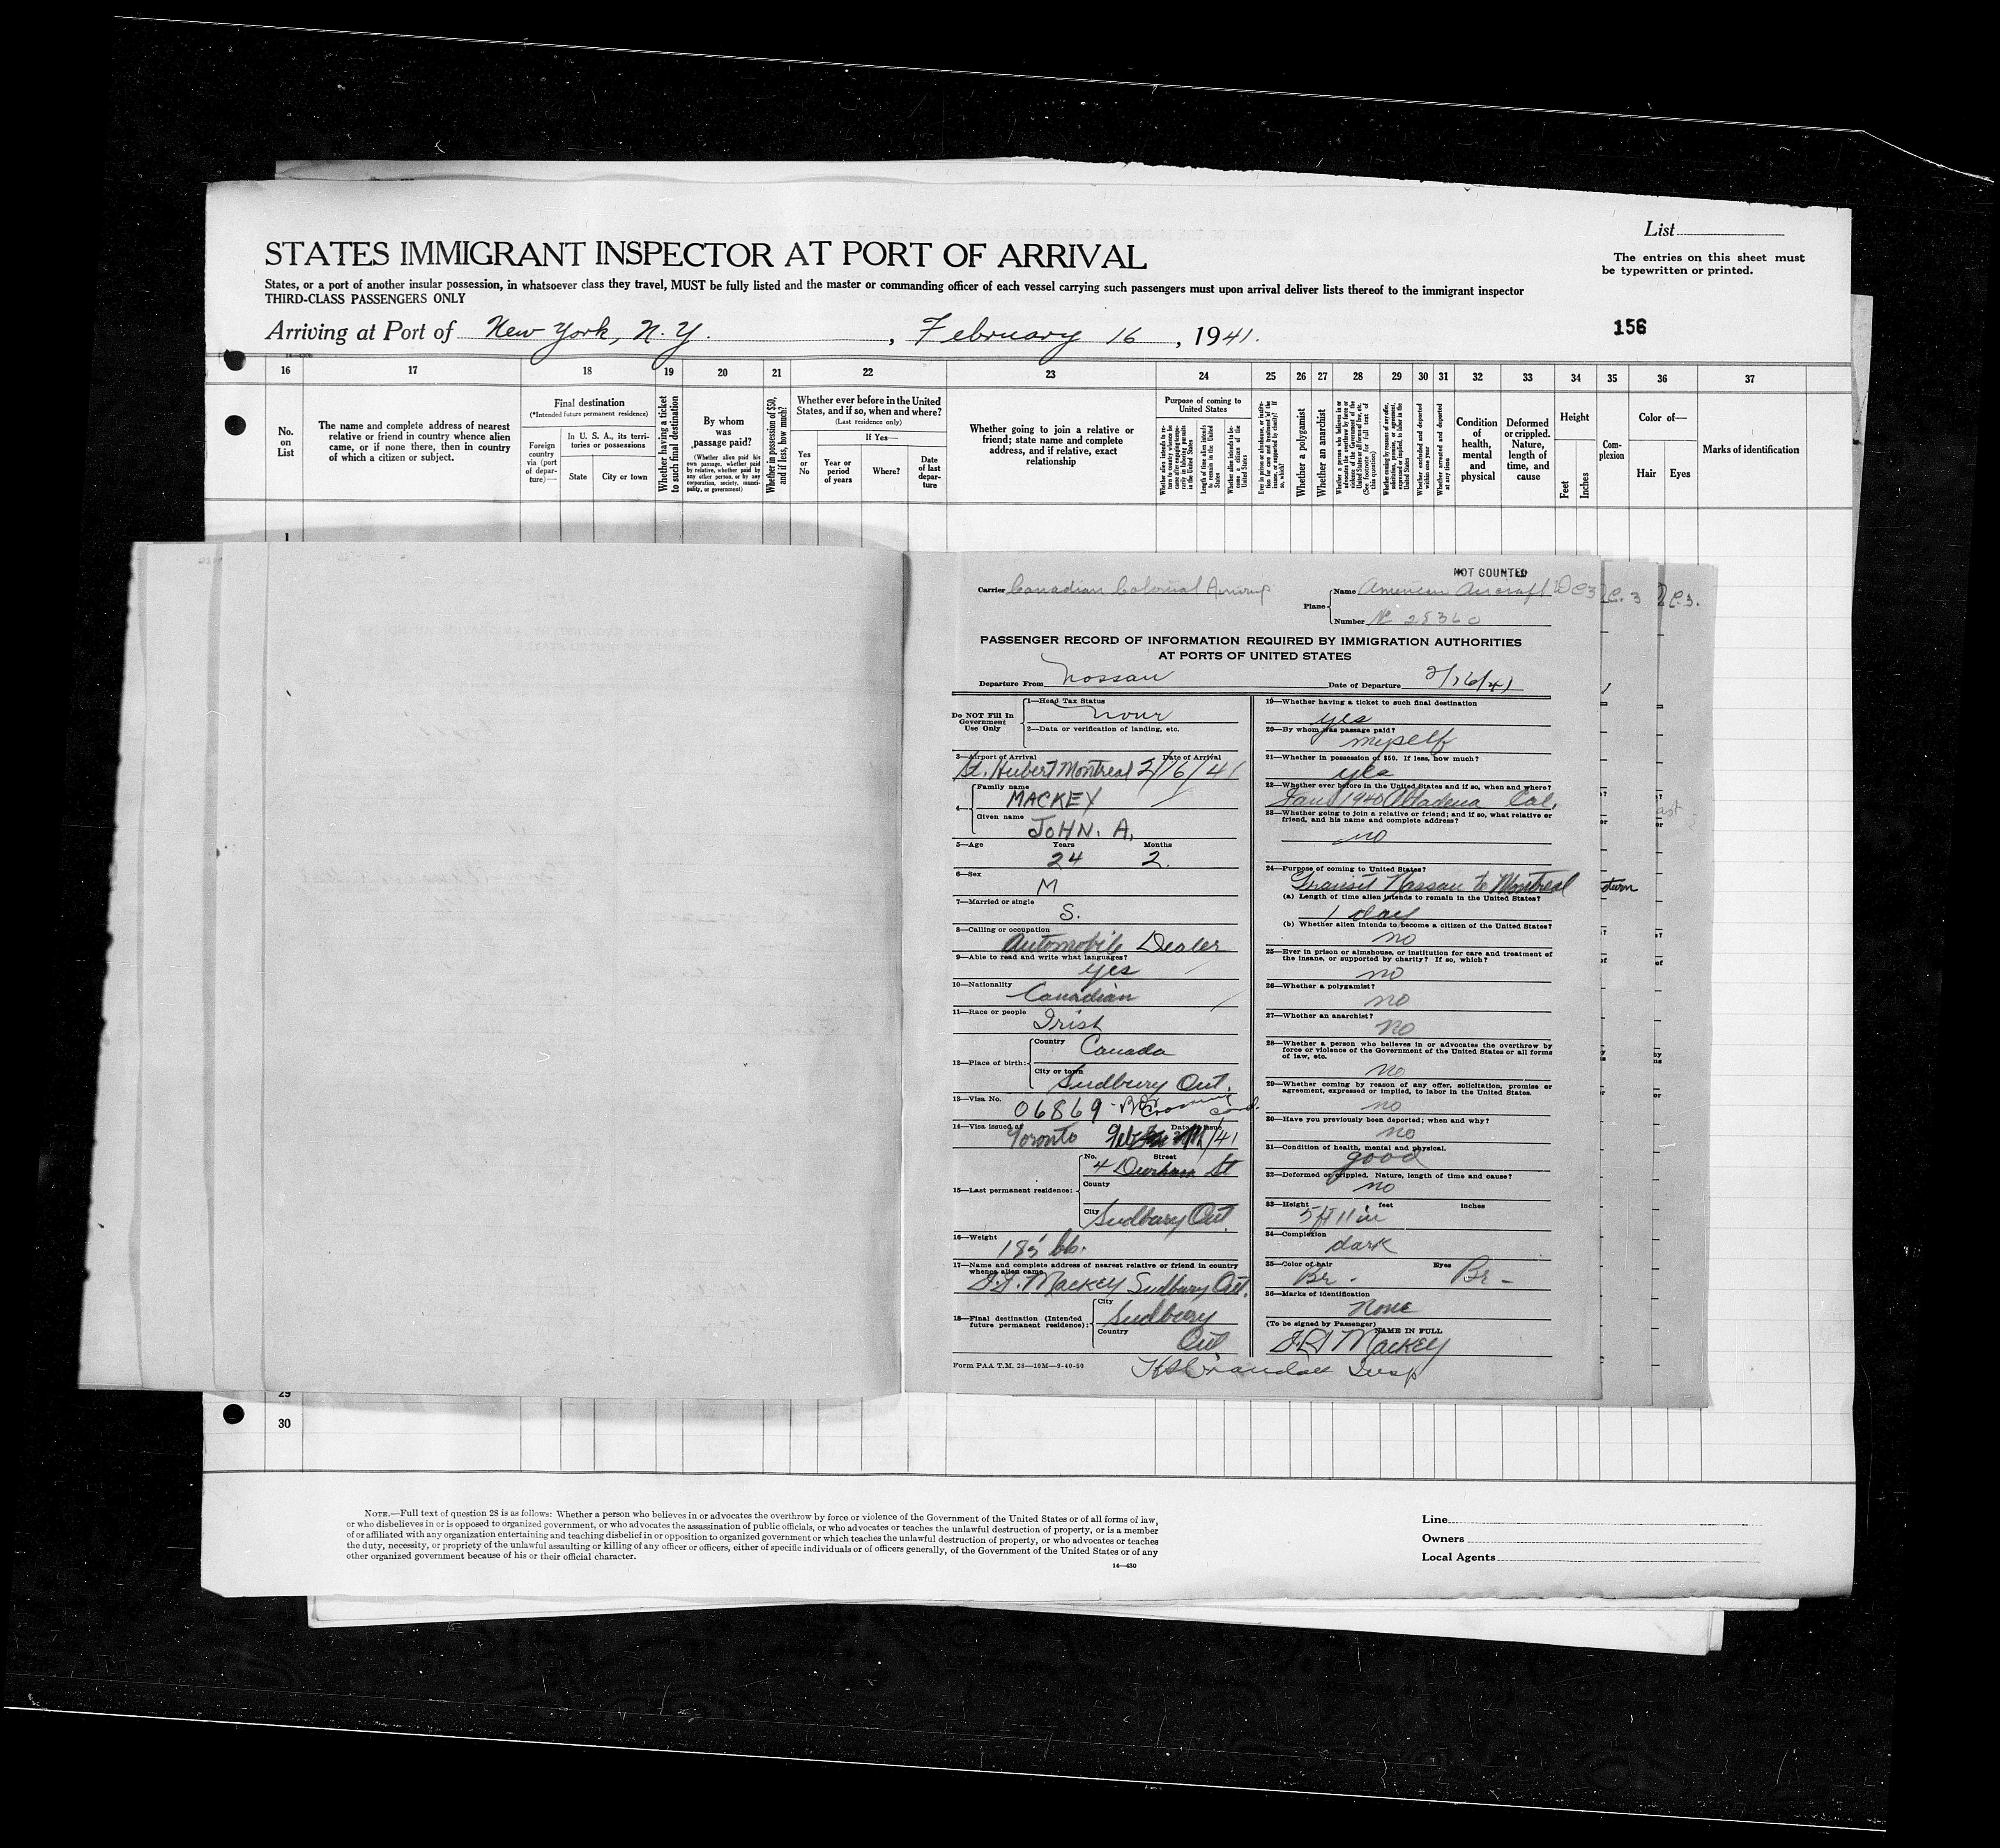 List
STATES IMMIGRANT INSPECTOR AT PORT OF ARRIVAL
The entries on this sheet must
be typewritten or printed.
States, or a port of another insular possession, in whatsoever class they travel, MUST be fully listed and the master or commanding officer of each vessel carrying such passengers must upon arrival deliver lists thereof to the immigrant inspector
THIRD-CLASS PASSENGERS ONLY
Arriving at Port of New York, N. Y. , February 16 , 1941.
156
16 17 18 19 20 21 22 23 24 25 26 27 28 29 30 31 32 33 34 35 36 37
No. on List
The name and complete address of nearest
relative or friend in country whence alien
came, or if none there, then in country
of which a citizen or subject.
Final destination
(*Intended future permanent residence)
Foreign
country
via (port
of depar-
ture)—
In U. S. A., its terri-
tories or possessions
State
City or town
Whether having a ticket
to such final destination
By whom
was
passage paid?
(Whether alien paid his
own passage, whether paid
by relative, whether paid by
any other person, or by any
corporation, society, munici-
pality, or government)
Whether in possession of $50,
and if less, how much?
Whether ever before in the United
States, and if so, when and where?
(Last residence only)
Yes
or
No
If Yes—
Year or
period
of years
Where?
Date
of last
depar-
ture
Whether going to join a relative or
friend; state name and complete
address, and if relative, exact
relationship
Purpose of coming to
United States
Whether a polygamist
Whether an anarchist
Condition
of
health,
mental
and
physical
Deformed
or crippled.
Nature,
length of
time, and
cause
Height
Feet
Inches
Com-
plexion
Color of—
Hair
Eyes
Marks of identification
1
NOT COUNTED
Carrier Canadian Colonial Airways
Plane
Name American Aircraft DC3
Number NC 25360
PASSENGER RECORD OF INFORMATION REQUIRED BY IMMIGRATION AUTHORITIES
AT PORTS OF UNITED STATES
Departure From Nassau Date of Departure 2/16/41
Do NOT Fill In
Government
Use Only
1—Head Tax Status
2—Data or verification of landing, etc.
3—Airport of Arrival Date of Arrival
St. Hubert Montreal 2/16/41
4—
Family name
MACKEY
Given name
JOHN. A.
5—Age Years Months
24 2.
6—Sex
M
7—Married or single
S.
8—Calling or occupation
Automobile Dealer
9—Able to read and write what languages?
yes
10—Nationality
Canadian
11—Race or people
Irish
12—Place of birth:
Country
Canada
City or town
Sudbury Ont.
13—Visa No.
06869 - Crossing card.
14—Visa issued at Date of issue
Toronto /41
15—Last permanent residence:
No. Street
4 Durham St
County
City
Sudbury Ont.
16—Weight
185 lb.
17—Name and complete address of nearest relative or friend in country
whence alien came
Mackey Sudbury Ont.
18—Final destination (Intended
future permanent residence):
City
Sudbury
Country
Ont
Form PAA T.M. 28—10M—9-40-50
19—Whether having a ticket to such final destination
yes
20—By whom was passage paid?
myself
21—Whether in possession of $50. If less, how much?
yes
22—Whether ever before in the United States and if so, when and where?
Jan 1940 Altadena Cal.
23—Whether going to join a relative or friend; and if so, what relative or
friend, and his name and complete address?
no
24—Purpose of coming to United States?
Transit Nassau to Montreal
(a) Length of time alien intends to remain in the United States?
1 day
(b) Whether alien intends to become a citizen of the United States?
no
25—Ever in prison or almshouse, or institution for care and treatment of
the insane, or supported by charity? If so, which?
no
26—Whether a polygamist?
no
27—Whether an anarchist?
no
28—Whether a person who believes in or advocates the overthrow by
force or violence of the Government of the United States or all forms
of law, etc.
no
29—Whether coming by reason of any offer, solicitation, promise or
agreement, expressed or implied, to labor in the United States.
no
30—Have you previously been deported; when and why?
no
31—Condition of health, mental and physical.
good
32—Deformed or crippled. Nature, length of time and cause?
no
33—Height feet inches
5 ft 11 in
34—Complexion
dark
35—Color of hair Eyes
Br - Br -
36—Marks of identification
None
(To be signed by Passenger)
NAME IN FULL
Mackey
Insp
29
30
NOTE.—Full text of question 28 is as follows: Whether a person who believes in or advocates the overthrow by force or violence of the Government of the United States or of all forms of law,
or who disbelieves in or is opposed to organized government, or who advocates the assassination of public officials, or who advocates or teaches the unlawful destruction of property, or is a member
of or affiliated with any organization entertaining and teaching disbelief in or opposition to organized government or which teaches the unlawful destruction of property, or who advocates or teaches
the duty, necessity, or propriety of the unlawful assaulting or killing of any officer or officers, either of specific individuals or of officers generally, of the Government of the United States or of any
other organized government because of his or their official character.
14—430
Line
Owners
Local Agents